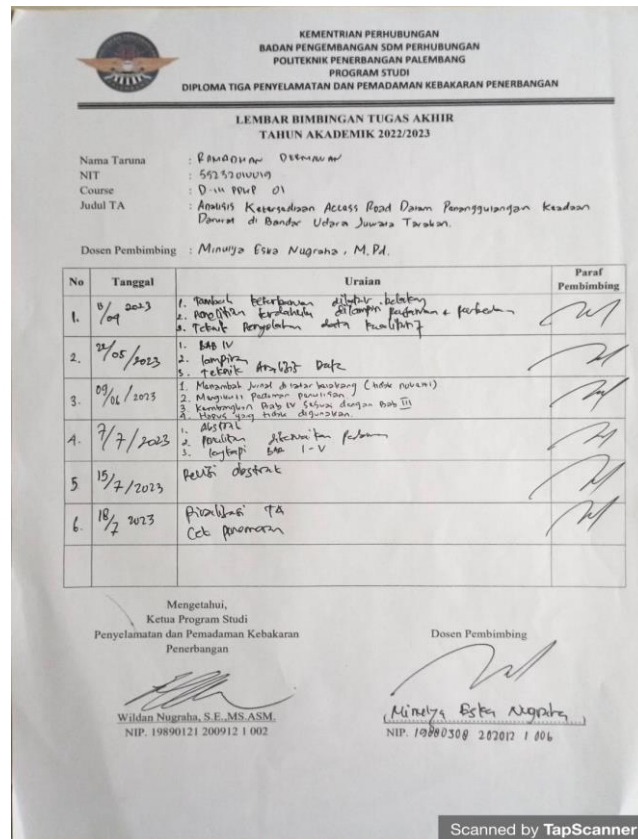 KEMENTRIAN PERHUBUNGAN
BADAN PENGEMBANGAN SDM PERHUBUNGAN
POLITEKNIK PENERBANGAN PALEMBANG
PROGRAM STUDI
DIPLOMA TIGA PENYELAMATAN DAN PEMADAMAN KEBAKARAN PENERBANGAN
LEMBAR BIMBINGAN TUGAS AKHIR
TAHUN AKADEMIK 2022/2023
Nama Taruna : RAMADHAN DERMAWAN
NIT : 55232010019
Course : D-III PPKP 01
Judul TA : Analisis Ketersediaan Access Road Dalam Penanggulangan Keadaan
Darurat di Bandar Udara Juwata Tarakan.
Dosen Pembimbing : Minulya Eska Nugraha, M.Pd.
No Tanggal Uraian Paraf Pembimbing
1. 2023
1. Tambah
2. Penelitian terdahulu
3. Teknik Pengolahan data kualitatif
2. 22/05/2023 1. BAB IV
2. lampiran
3. Teknik Analisis Data
3. 09/06/2023 1. Menambah Jurnal di latar belakang
2. Mengikuti Pedoman penulisan
3. Kembangkan Bab IV sesuai dengan Bab III
4. Hapus yang tidak digunakan.
4. 7/7/2023 1. Abstrak
2. disesuaikan
3. lengkapi BAB I-V
5 15/7/2023 Revisi abstrak
6. 18/7 2023 TA
Cek penomoran
Mengetahui,
Ketua Program Studi
Penyelamatan dan Pemadaman Kebakaran
Penerbangan
Wildan Nugraha, S.E.,MS.ASM.
NIP. 19890121 200912 1 002
Dosen Pembimbing
Minulya Eska Nugraha
NIP. 19880308 202012 1 006
Scanned by TapScanner